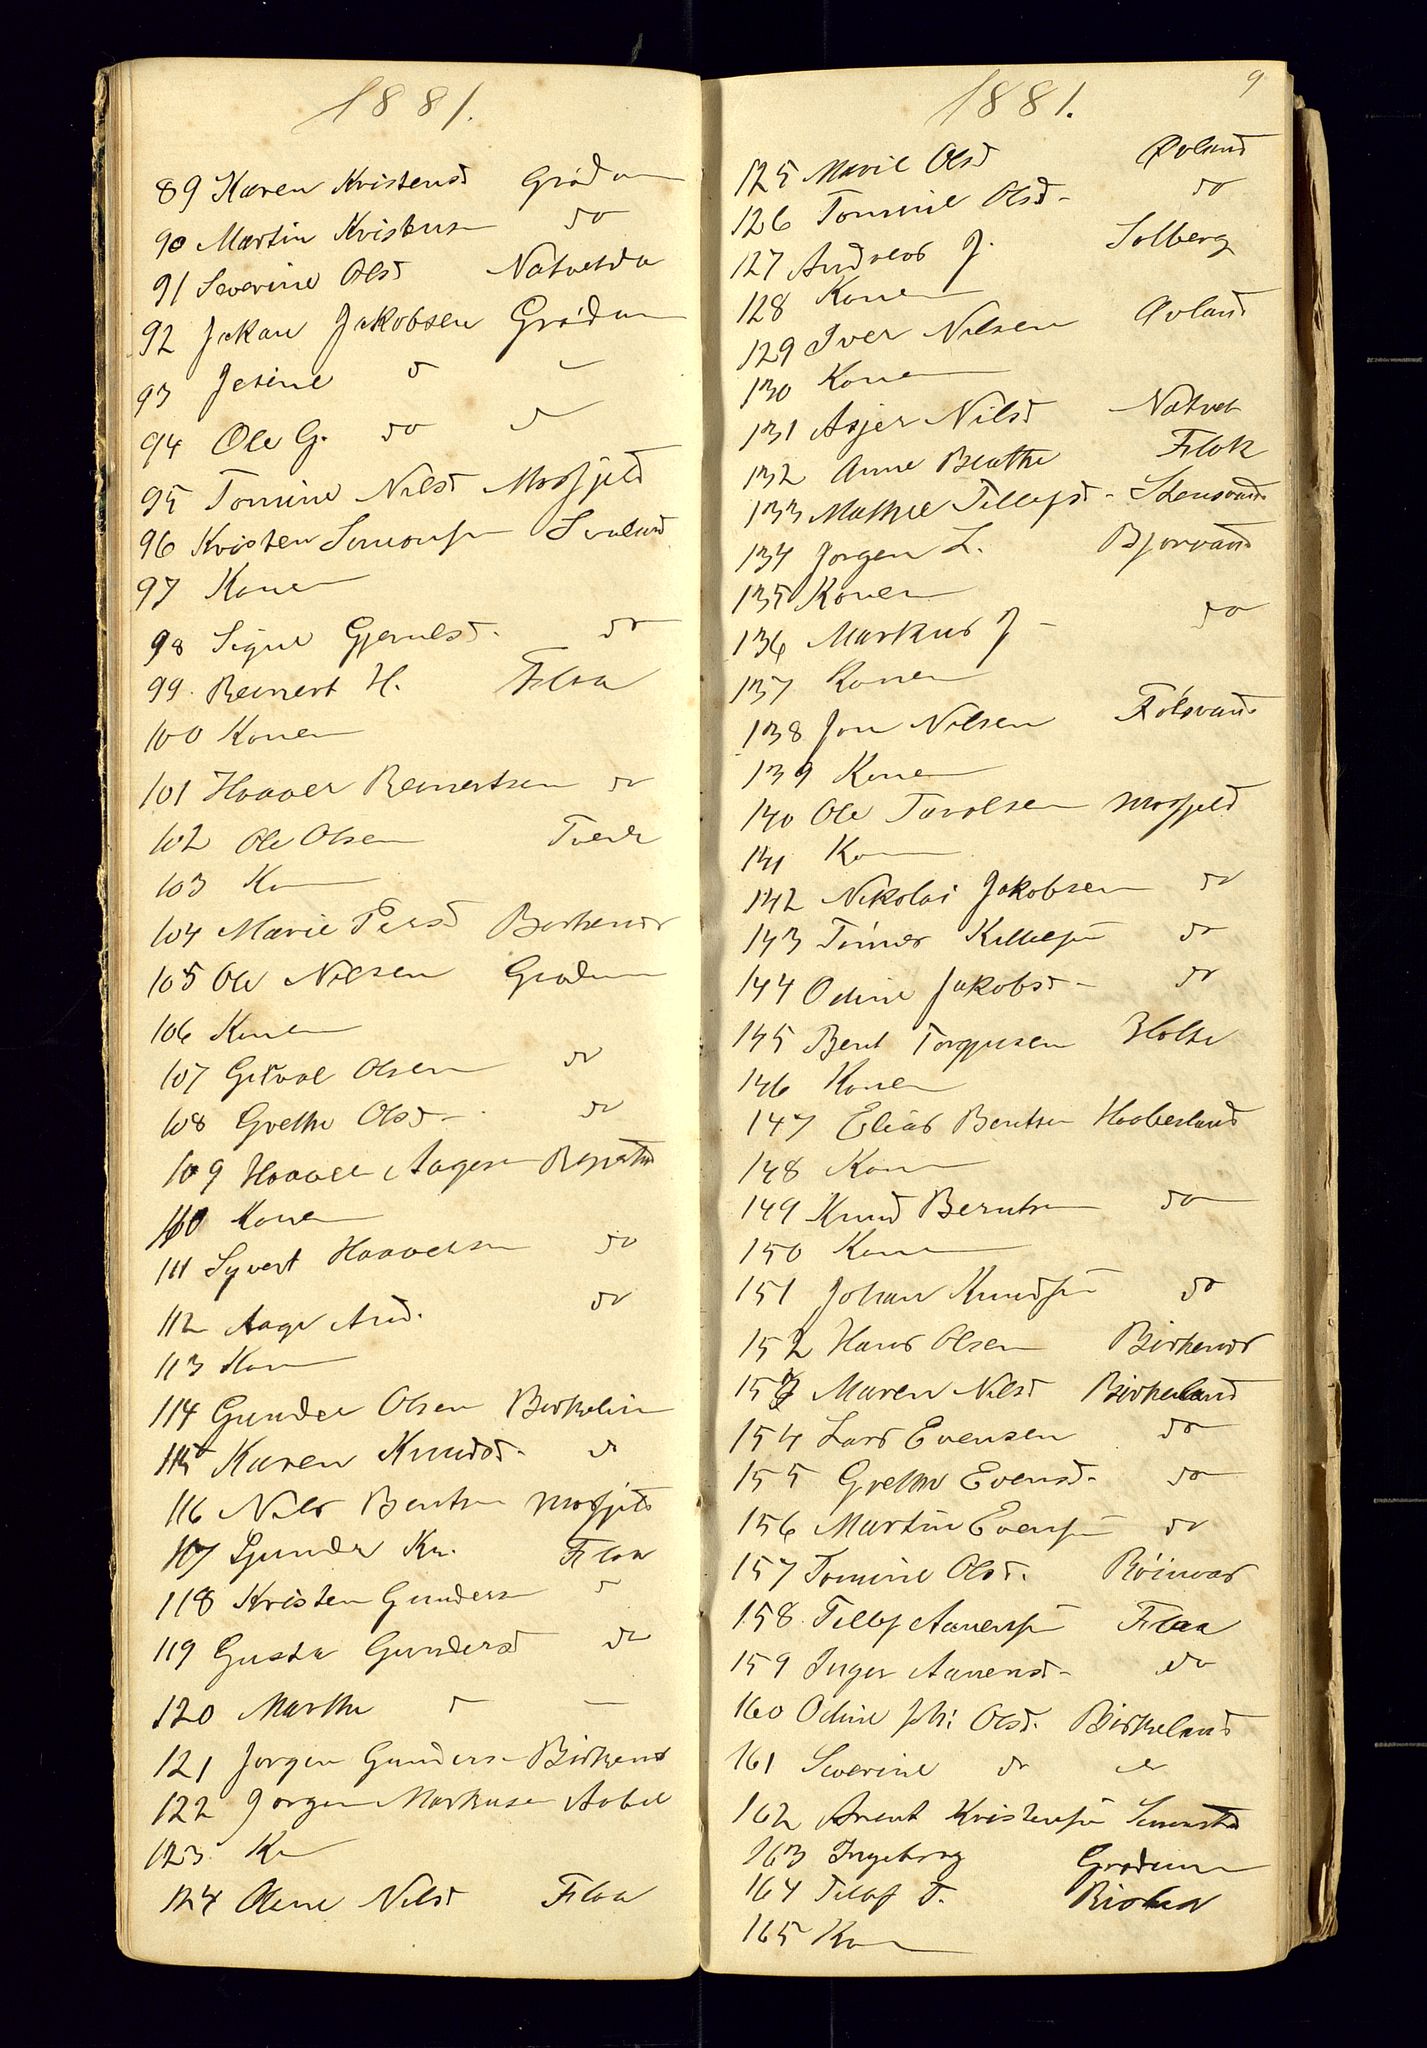 1881.
89 Karen Kristensd Grødum
90 Martin Kristensen do
91 Severine Olsd Natvetda
92 Jakan Jakobsen Grødum
93 Jesine d -
94 Ole G. do d
95 Tomine Nilsd Mosfjeld
96 Kristen Simonsen Svaland
97 Konen
98 Signe Gjerulsd. do
99. Reinert H. Flaa
100 Konen
101 Haaver Reinertsen do
102 Ole Olsen Tveite
103 Kon
104 Marie Persd Birkenes
105 Ole Nilsen Grødum
106 Konen
107 Gitvol Olsen do
108 Grethe Olsd - do
109 Haavel Aagesen
110 Konen
111 Syvert Haavelsen do
112 Aage And. do
113 Kon
114 Gunder Olsen Birkelien
115 Karen Knudsd. do
116 Nils Bentsen Mosfjeld
117 Gunder Kr. Flaa
118 Kristen Gundersen d
119 Gusta Gundersd do
120 Marthe d -
121 Jørgen Gundersen Birkenes
122 Jørgen Markusen
123 Kn
124 Olene Nilsd Flaa
9
1881.
125 Marie Olsd Øvland
126 Tomine Olsd - do
127 Andreas J. Solberg
128 Konen
129 Iver Nilsen Øvland
130 Konen
131 Asjer Nilsd Natvet
132 Anne Beathe Flak
133 Mathie Tellefsd - Stensvand
134 Jørgen L. Bjorvand
135 Konen
136 Markus J - do
137 Konen
138 Jon Nilsen
139 Konen
140 Ole Tarolsen Mosfjeld
141 Kon
142 Nikolai Jakobsen do
143 Tønnes Killefsen do
144 Odine Jakobsd - do
145 Bent Torgusen
146 Konen
147 Elias Bentsen Haaberland
148 Kon
149 Knud Berntsen do
150 Kon
151 Johan Knudsen do
152 Hans Olsen Birkenes
153 Maren Nilsd Birkeland
154 Lars Evensen do
155 Grethe Evensd. do
156 Martin Evensen do
157 Tomine Olsd. Røinaas
158. Tellef Aanensen Flaa
159 Inger Aanensd - do
160 Odine Joh: Olsd. Birkeland
161 Severine do do
162 Arent Kristensen
163 Ingeborg Grødum
164 Telof T.
165 Kon